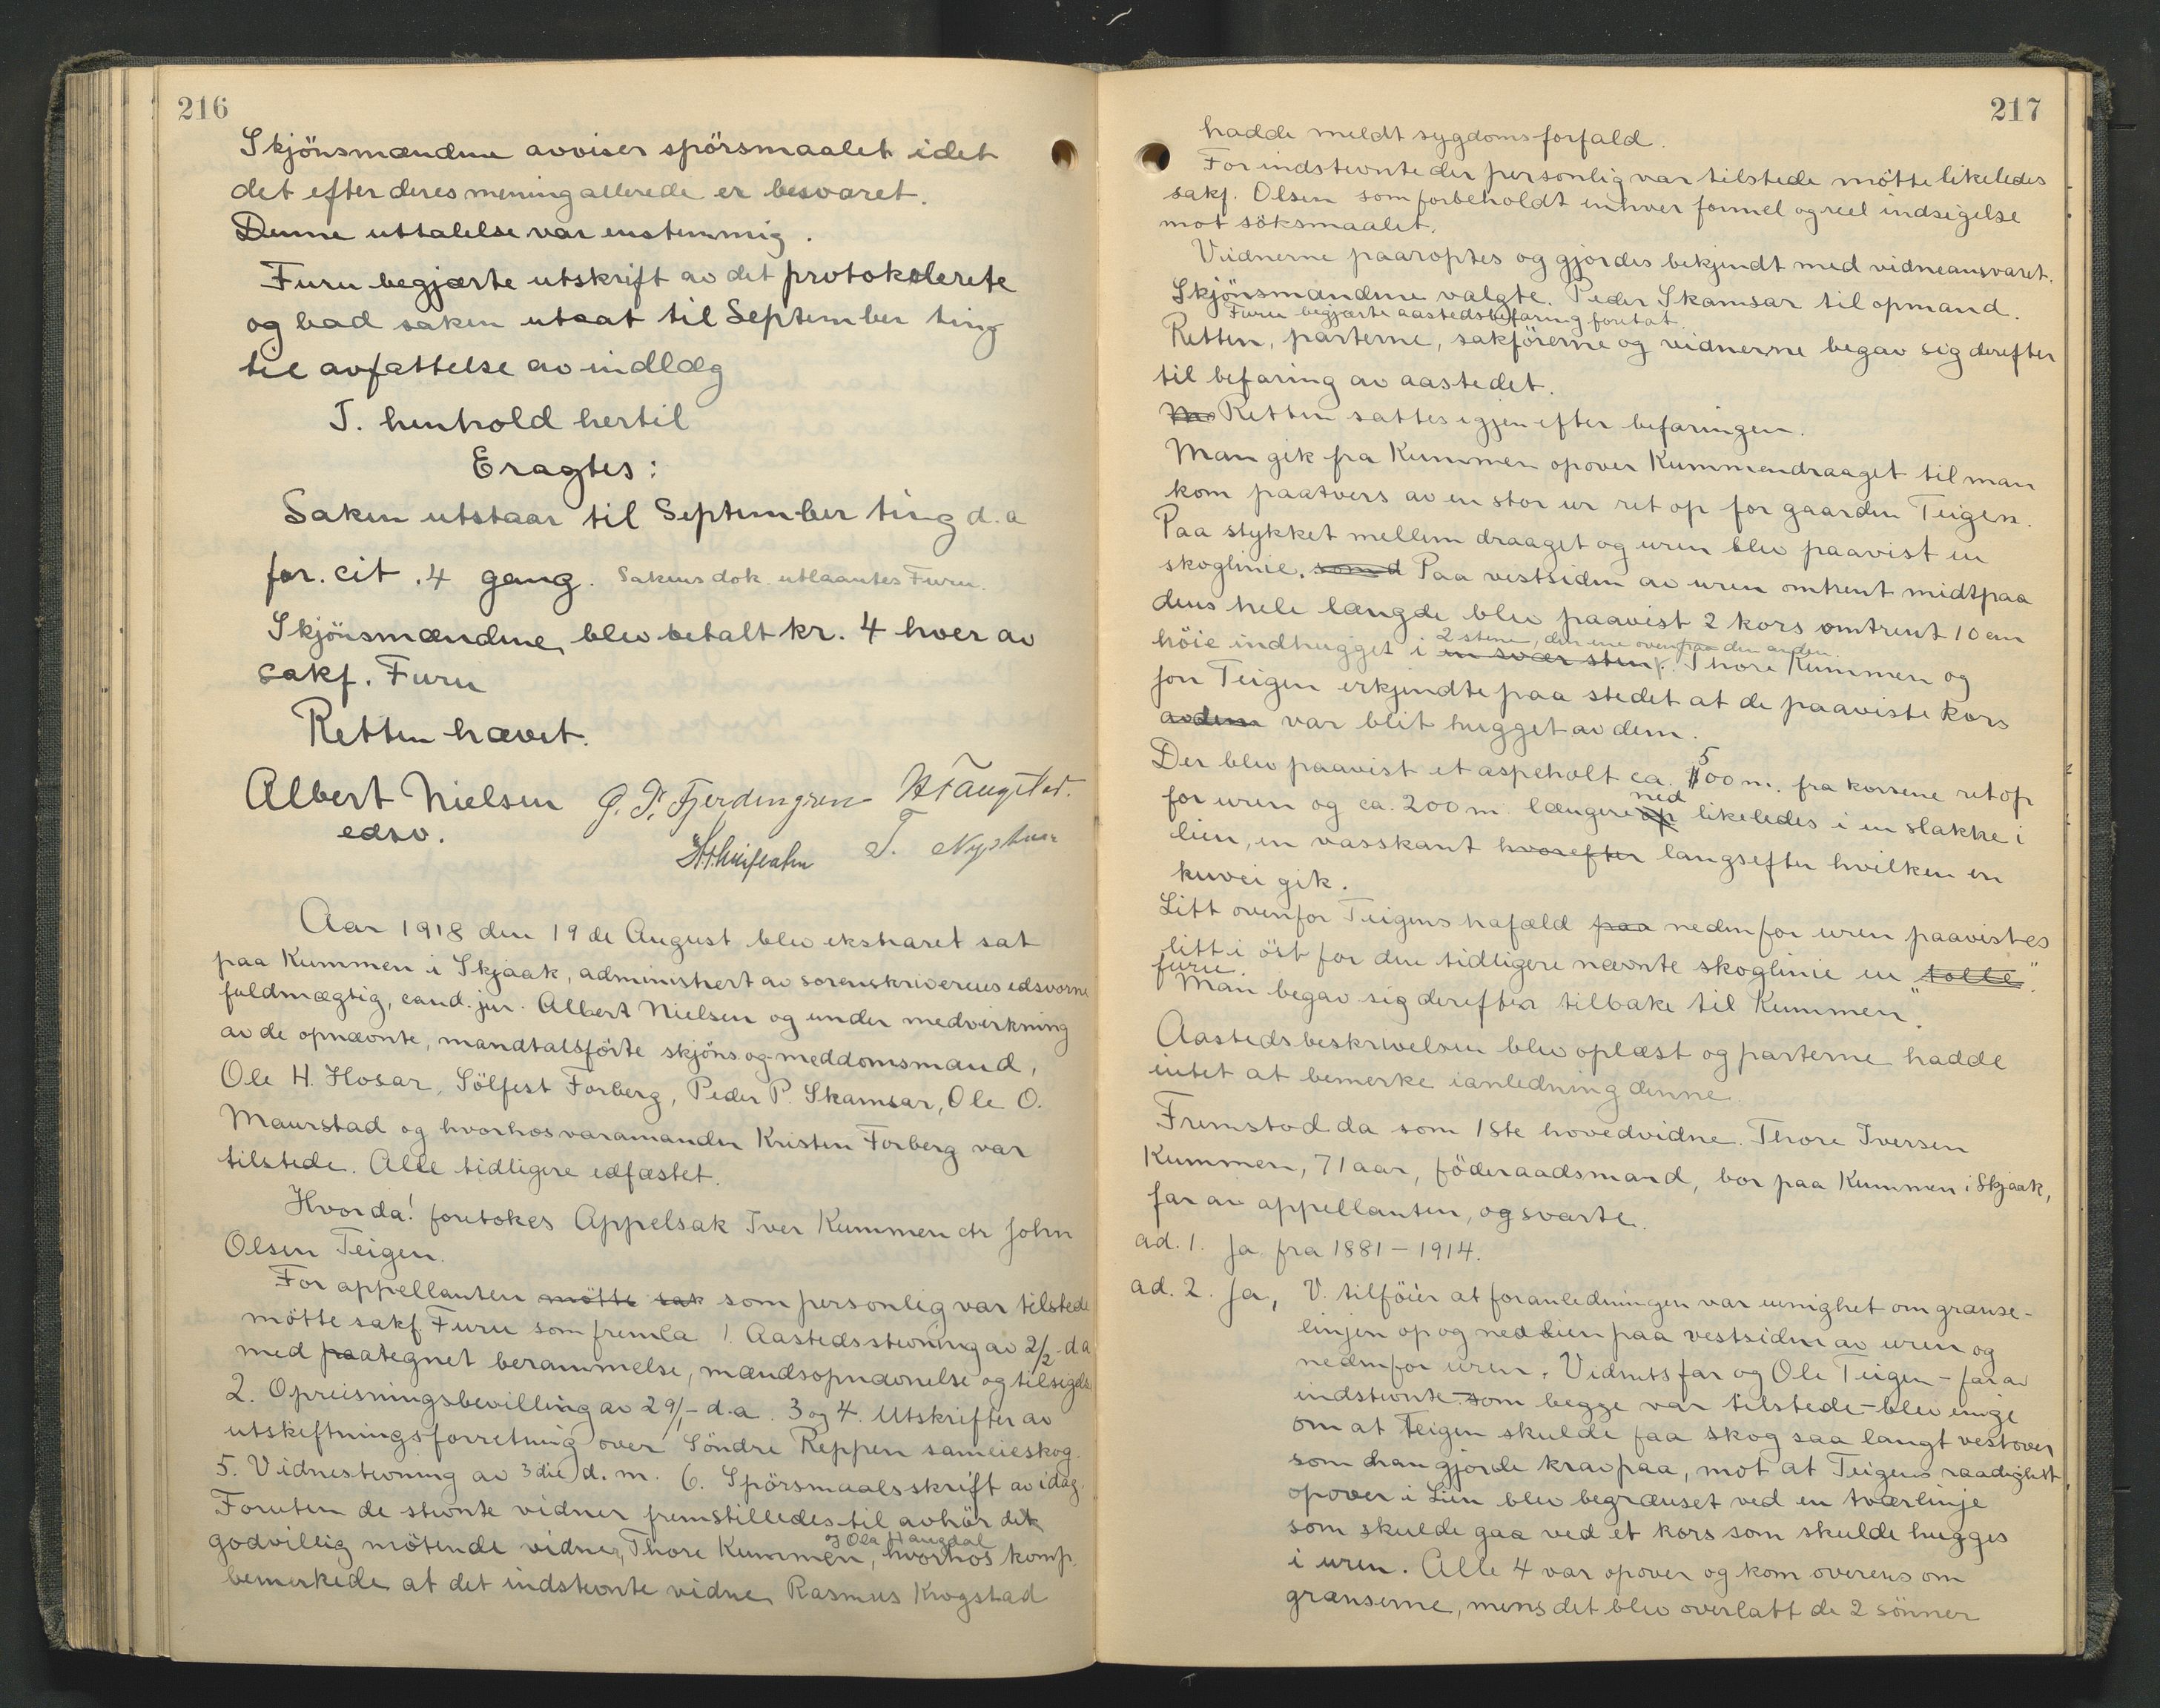 216
Skjönsmændene avviser spörsmaalet idet
det efter deres mening allerede er besvaret.
Denne uttalelse var enstemmig.
Furu begjærte utskrift av det protokolerete
og bad saken utsat til September ting
til avfattelse av indlæg
I. henhold hertil
Eragtes:
Saken utstaar til September ting d.a
for. cit. 4 gang. Sakens dok. utlaantes Furu.
Skjönsmændene blev betalt kr. 4 hver av
sakf. Furu
Retten hævet.
Albert Nielsen
edsv.
T.
Aar 1918 den 19de August blev ekstraret sat
paa Kummen i Skjaak, administrert av sorenskriverens edsvorne
fuldmægtig, cand. jur. Albert Nielsen og under medvirkning
av de opnævnte, mandtalsförte skjöns og meddomsmænd,
Ole H. Hosar, Sölfest Forberg, Peder P. Skamsar, Ole O.
Maurstad og hvorhos varamanden Kristen Forberg var
tilstede. Alle tidligere edfæstet.
Hvorda! foretokes Appelsak Iver Kummen ctr John
Olsen Teigen.
For appellanten mötte sak som personlig var tilstede
mötte sakf. Furu som fremla 1. Aastedsstevning av 2/2 d.a
med paategnet berammelse, mændsopnævnelse og tilsigelse
2. Opreisningsbevilling av 29/1- d.a. 3 og 4. Utskrifter av
utskiftningsforretning over Söndre Reppen sameieskog.
5. Vidnestevning av 3die d.m. 6. Spörsmaalsskrift av idag.
Foruten de stevnte vidner fremstilledes til avhör det
og Ola Haugdal
godvillig mötende vidne, Thore Kummen, hvorhos komp.
bemerkede at det indstevnte vidne Rasmus Krogstad
217
hadde meldt sygdomsforfald.
For indstevnte der personlig var tilstede mötte likeledes
sakf. Olsen som forbeholdt enhver formel og reel indsigelse
mot söksmaalet.
Vidnerne paaroptes og gjordes bekjendt med vidneansvaret.
Skjönsmændene valgte. Peder Skamsar til opmand.
Furu begjærte aastedsbefaring foretat.
Retten, parterne, sakförerne og vidnerne begav sig derefter
til befaring av aastedet.
Retten sattes igjen efter befaringen.
Man gik fra Kummen opover Kummendraaget til man
kom paatvers av en stor ur ret op for gaarden Teigen.
Paa stykket mellem draaget og uren blev paavist en
skoglinie. som d Paa vestsiden av uren omtrent midtpaa
dens hele længde blev paavist 2 kors omtrent 10 cm
2 stene, den ene ovenpaa den anden.
höie indhugget i en svær sten. Thore Kummen og
Jon Teigen erkjendte paa stedet at de paaviste kors
av dem var blit hugget av dem.
Der blev paavist et aspeholt ca. 500 m. fra korsene ret op
ned
for uren og ca. 200 m længere op likeledes i en slakke i
lien, en vasskant hvorefter langsefter hvilken en
kuvei gik.
Litt ovenfor Teigens hafæld paa nedenfor uren paavistes
litt i öst for den tidligere nævnte skoglinie en "tolle"
furu.
Man begav sig derefter tilbake til Kummen.
Aastedsbeskrivelsen blev oplæst og parterne hadde
intet at bemerke i anledning denne.
Fremstod da som 1ste hovedvidne. Thore Iversen
Kummen, 71 aar, föderaadsmand, bor paa Kummen i Skjaak,
far av appellanten, og svarte.
ad. 1. Ja fra 1881-1914.
ad. 2. Ja, V. tilföier at foranledningen var uenighet om grænse-
linjen op og ned Lien paa vestsiden av uren og
nedenfor uren. Vidnets far og Ole Teigen - far av
indstevnte - som begge var tilstede - blev enige
om at Teigen skulde faa skog saa langt vestover
som han gjorde krav paa, mot at Teigens raadighet
opover i Lien blev begrænset ved en tværlinje
som skulde gaa ved et kors som skulde hugges
i uren. Alle 4 var opover og kom overens om
grænserne, mens det blev overlatt de 2 sönner